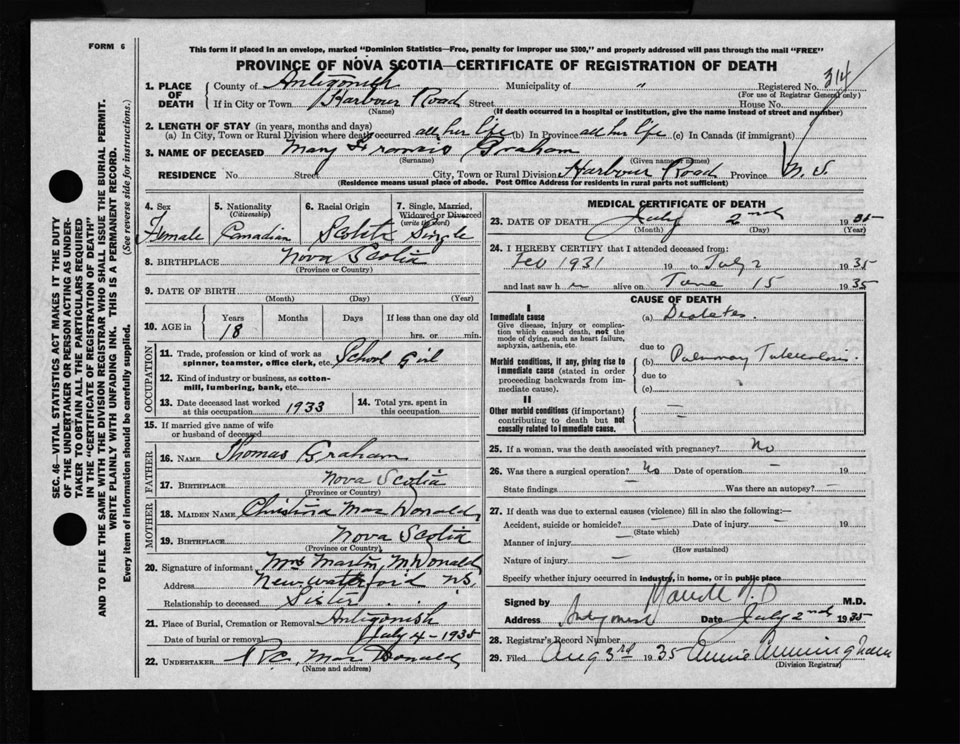 FORM 6
This form if placed in an envelope, marked "Dominion Statistics—Free, penalty for improper use $300," and properly addressed will pass through the mail "FREE"
PROVINCE OF NOVA SCOTIA—CERTIFICATE OF REGISTRATION OF DEATH
1. PLACE OF DEATH
County of Antigonish Municipality of " Registered No. 314
(For use of Registrar General only)
If in City or Town Harbour Road Street House No.
(Name) (If death occurred in a hospital or institution, give the name instead of street and number)
2. LENGTH OF STAY (in years, months and days)
(a) In City, Town or Rural Division where death occurred all her life (b) In Province all her life (c) In Canada (if immigrant)
3. NAME OF DECEASED Mary Francis Graham
(Surname) (Given name or names)
RESIDENCE No. Street City, Town or Rural Division Harbour Road Province N.S.
(Residence means usual place of abode. Post Office Address for residents in rural parts not sufficient)
4. Sex Female
5. Nationality (Citizenship) Canadian
6. Racial Origin
7. Single, Married, Widowed or Divorced (write the word) Single
8. BIRTHPLACE Nova Scotia
(Province or Country)
9. DATE OF BIRTH
(Month) (Day) (Year)
10. AGE in Years Months Days If less than one day old
18 hrs. or min.
OCCUPATION
11. Trade, profession or kind of work as spinner, teamster, office clerk, etc. School Girl
12. Kind of industry or business, as cotton-mill, lumbering, bank, etc.
13. Date deceased last worked at this occupation 1933
14. Total yrs. spent in this occupation
15. If married give name of wife or husband of deceased
FATHER
16. NAME Thomas Graham
17. BIRTHPLACE Nova Scotia
(Province or Country)
MOTHER
18. MAIDEN NAME Christina MacDonald
19. BIRTHPLACE Nova Scotia
(Province or Country)
20. Signature of informant Mrs Martin McDonald
Address New Waterford N.S.
Relationship to deceased Sister
21. Place of Burial, Cremation or Removal Antigonish
Date of burial or removal July 4 - 1935
22. UNDERTAKER MacDonald
(Name and address)
MEDICAL CERTIFICATE OF DEATH
23. DATE OF DEATH July 2nd 1935
(Month) (Day) (Year)
24. I HEREBY CERTIFY that I attended deceased from:
Feb 1931 19 to July 2 1935
and last saw h er alive on June 15 1935
CAUSE OF DEATH
I
Immediate cause
Give disease, injury or complication which caused death, not the mode of dying, such as heart failure, asphyxia, asthenia, etc.
(a) Diabetes.
due to
Morbid conditions, if any, giving rise to immediate cause (stated in order proceeding backwards from immediate cause).
(b) Pulmonary Tuberculosis.
due to
(c)
II
Other morbid conditions (if important) contributing to death but not causally related to immediate cause.
25. If a woman, was the death associated with pregnancy? No
26. Was there a surgical operation? No Date of operation — 19
State findings Was there an autopsy? —
27. If death was due to external causes (violence) fill in also the following:—
Accident, suicide or homicide? Date of injury — 19
(State which)
Manner of injury —
(How sustained)
Nature of injury —
Specify whether injury occurred in industry, in home, or in public place
Signed by M.D.
Address Antigonish Date July 2nd 1935
28. Registrar's Record Number
29. Filed Aug 3rd 1935 Annie Cunningham
(Division Registrar)
SEC. 46—VITAL STATISTICS ACT MAKES IT THE DUTY
OF THE UNDERTAKER OR PERSON ACTING AS UNDER-
TAKER TO OBTAIN ALL THE PARTICULARS REQUIRED
IN THE "CERTIFICATE OF REGISTRATION OF DEATH"
AND TO FILE THE SAME WITH THE DIVISION REGISTRAR WHO SHALL ISSUE THE BURIAL PERMIT.
WRITE PLAINLY WITH UNFADING INK. THIS IS A PERMANENT RECORD.
Every item of information should be carefully supplied. (See reverse side for instructions.)